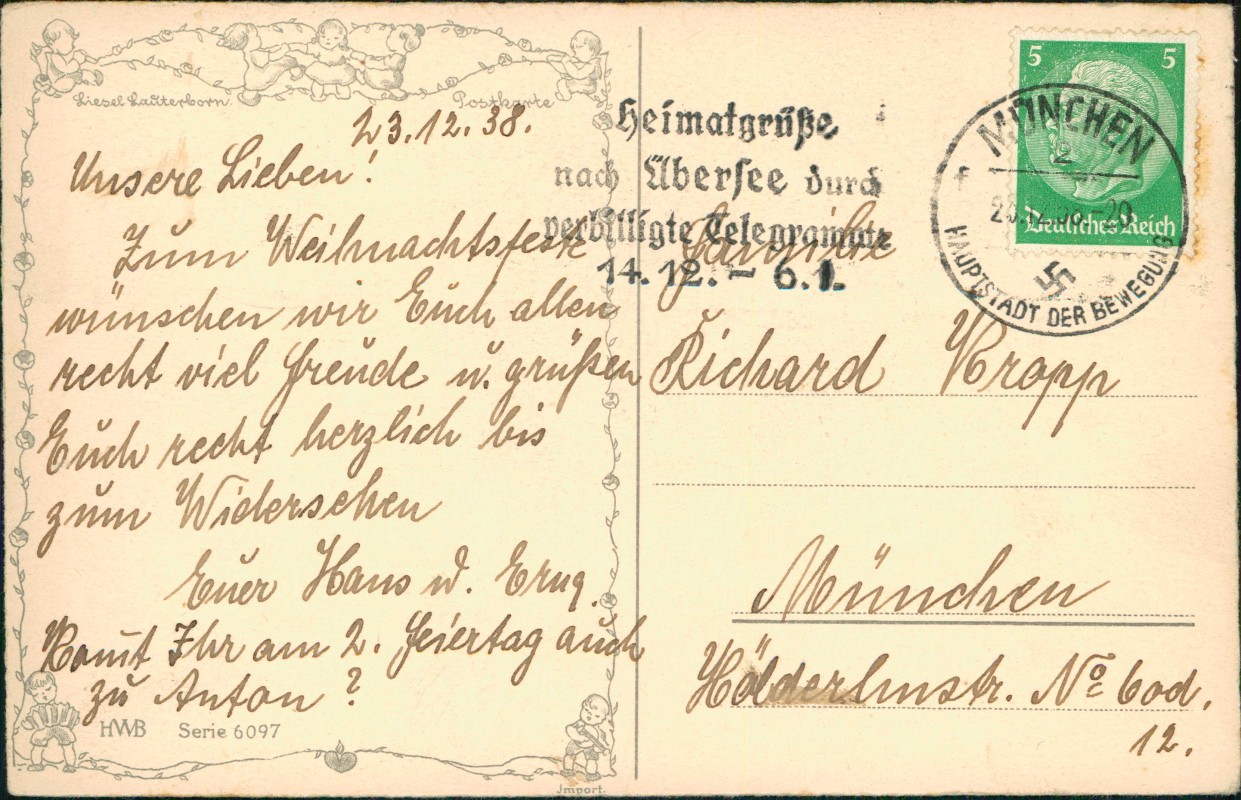 Liesel Lauterborn.
Postkarte
23.12.38.
Unsere Lieben!
Zum Weihnachtsfeste
wünschen wir Euch allen
recht viel Freude u. grüßen
Euch recht herzlich bis
zum Widersehen
Euer Hans u.
Komt Ihr am 2. Feiertag auch
zu Anton?
HWB Serie 6097
Import.
Heimatgrüße
nach Übersee durch
verbilligte Telegramme
14.12. – 6.1.
5 5
Deutsches Reich
MÜNCHEN
2
f
HAUPTSTADT DER BEWEGUNG
Familie
Richard Kropp
München
Hölderlinstr. No
12.